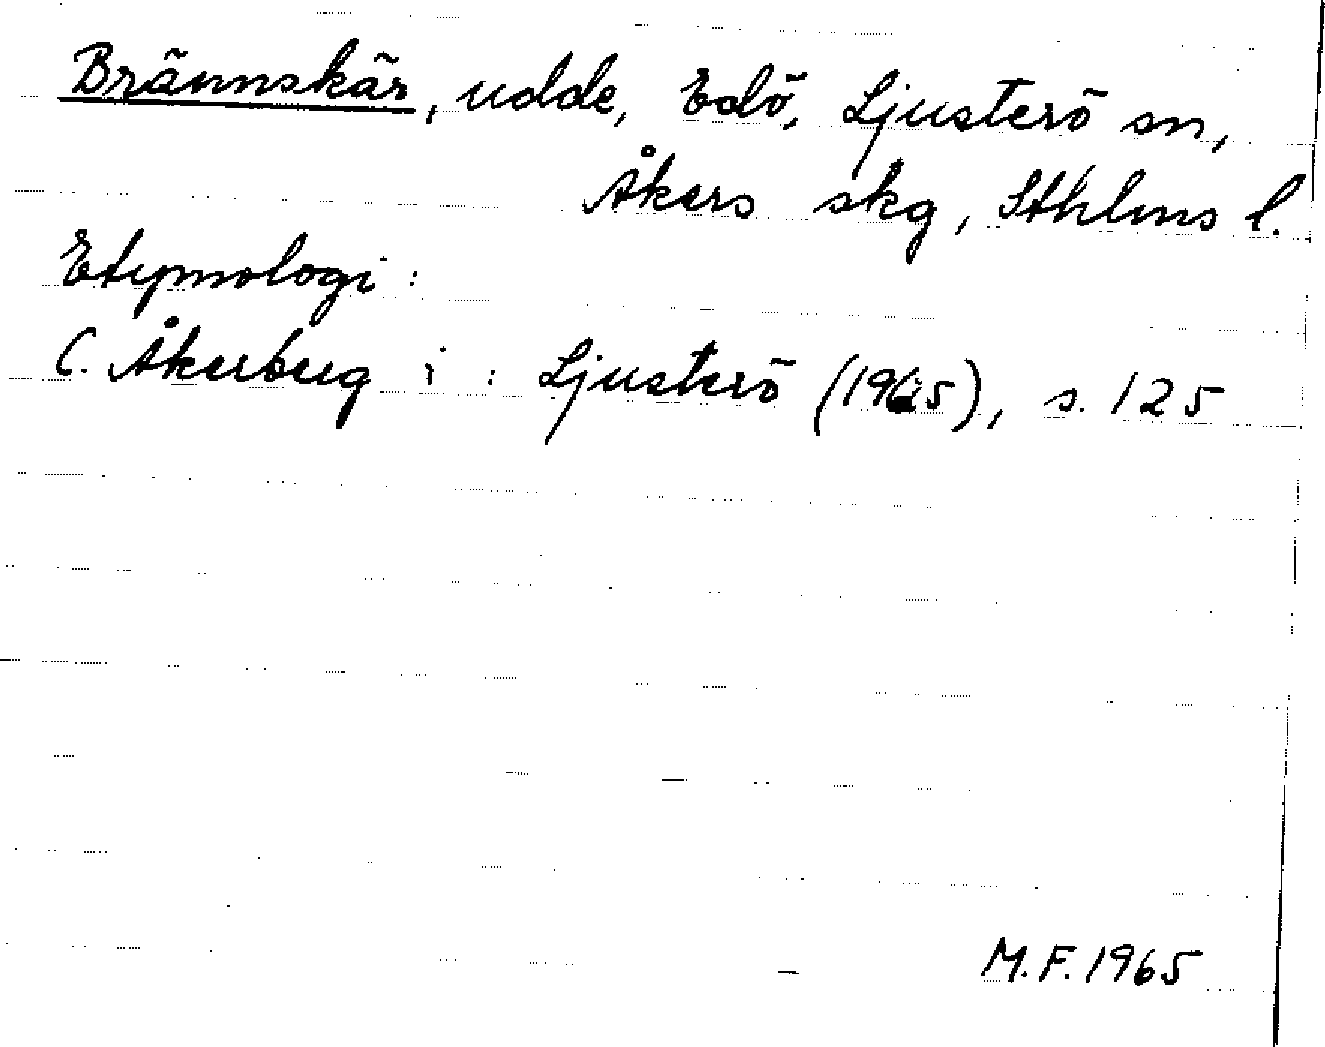 Brännskär, udde, Edö, Ljusterö sn,
Åkers skg, Sthlms l.
Etymologi:
C. Åkerberg i: Ljusterö (1965), s. 125
M.F. 1965